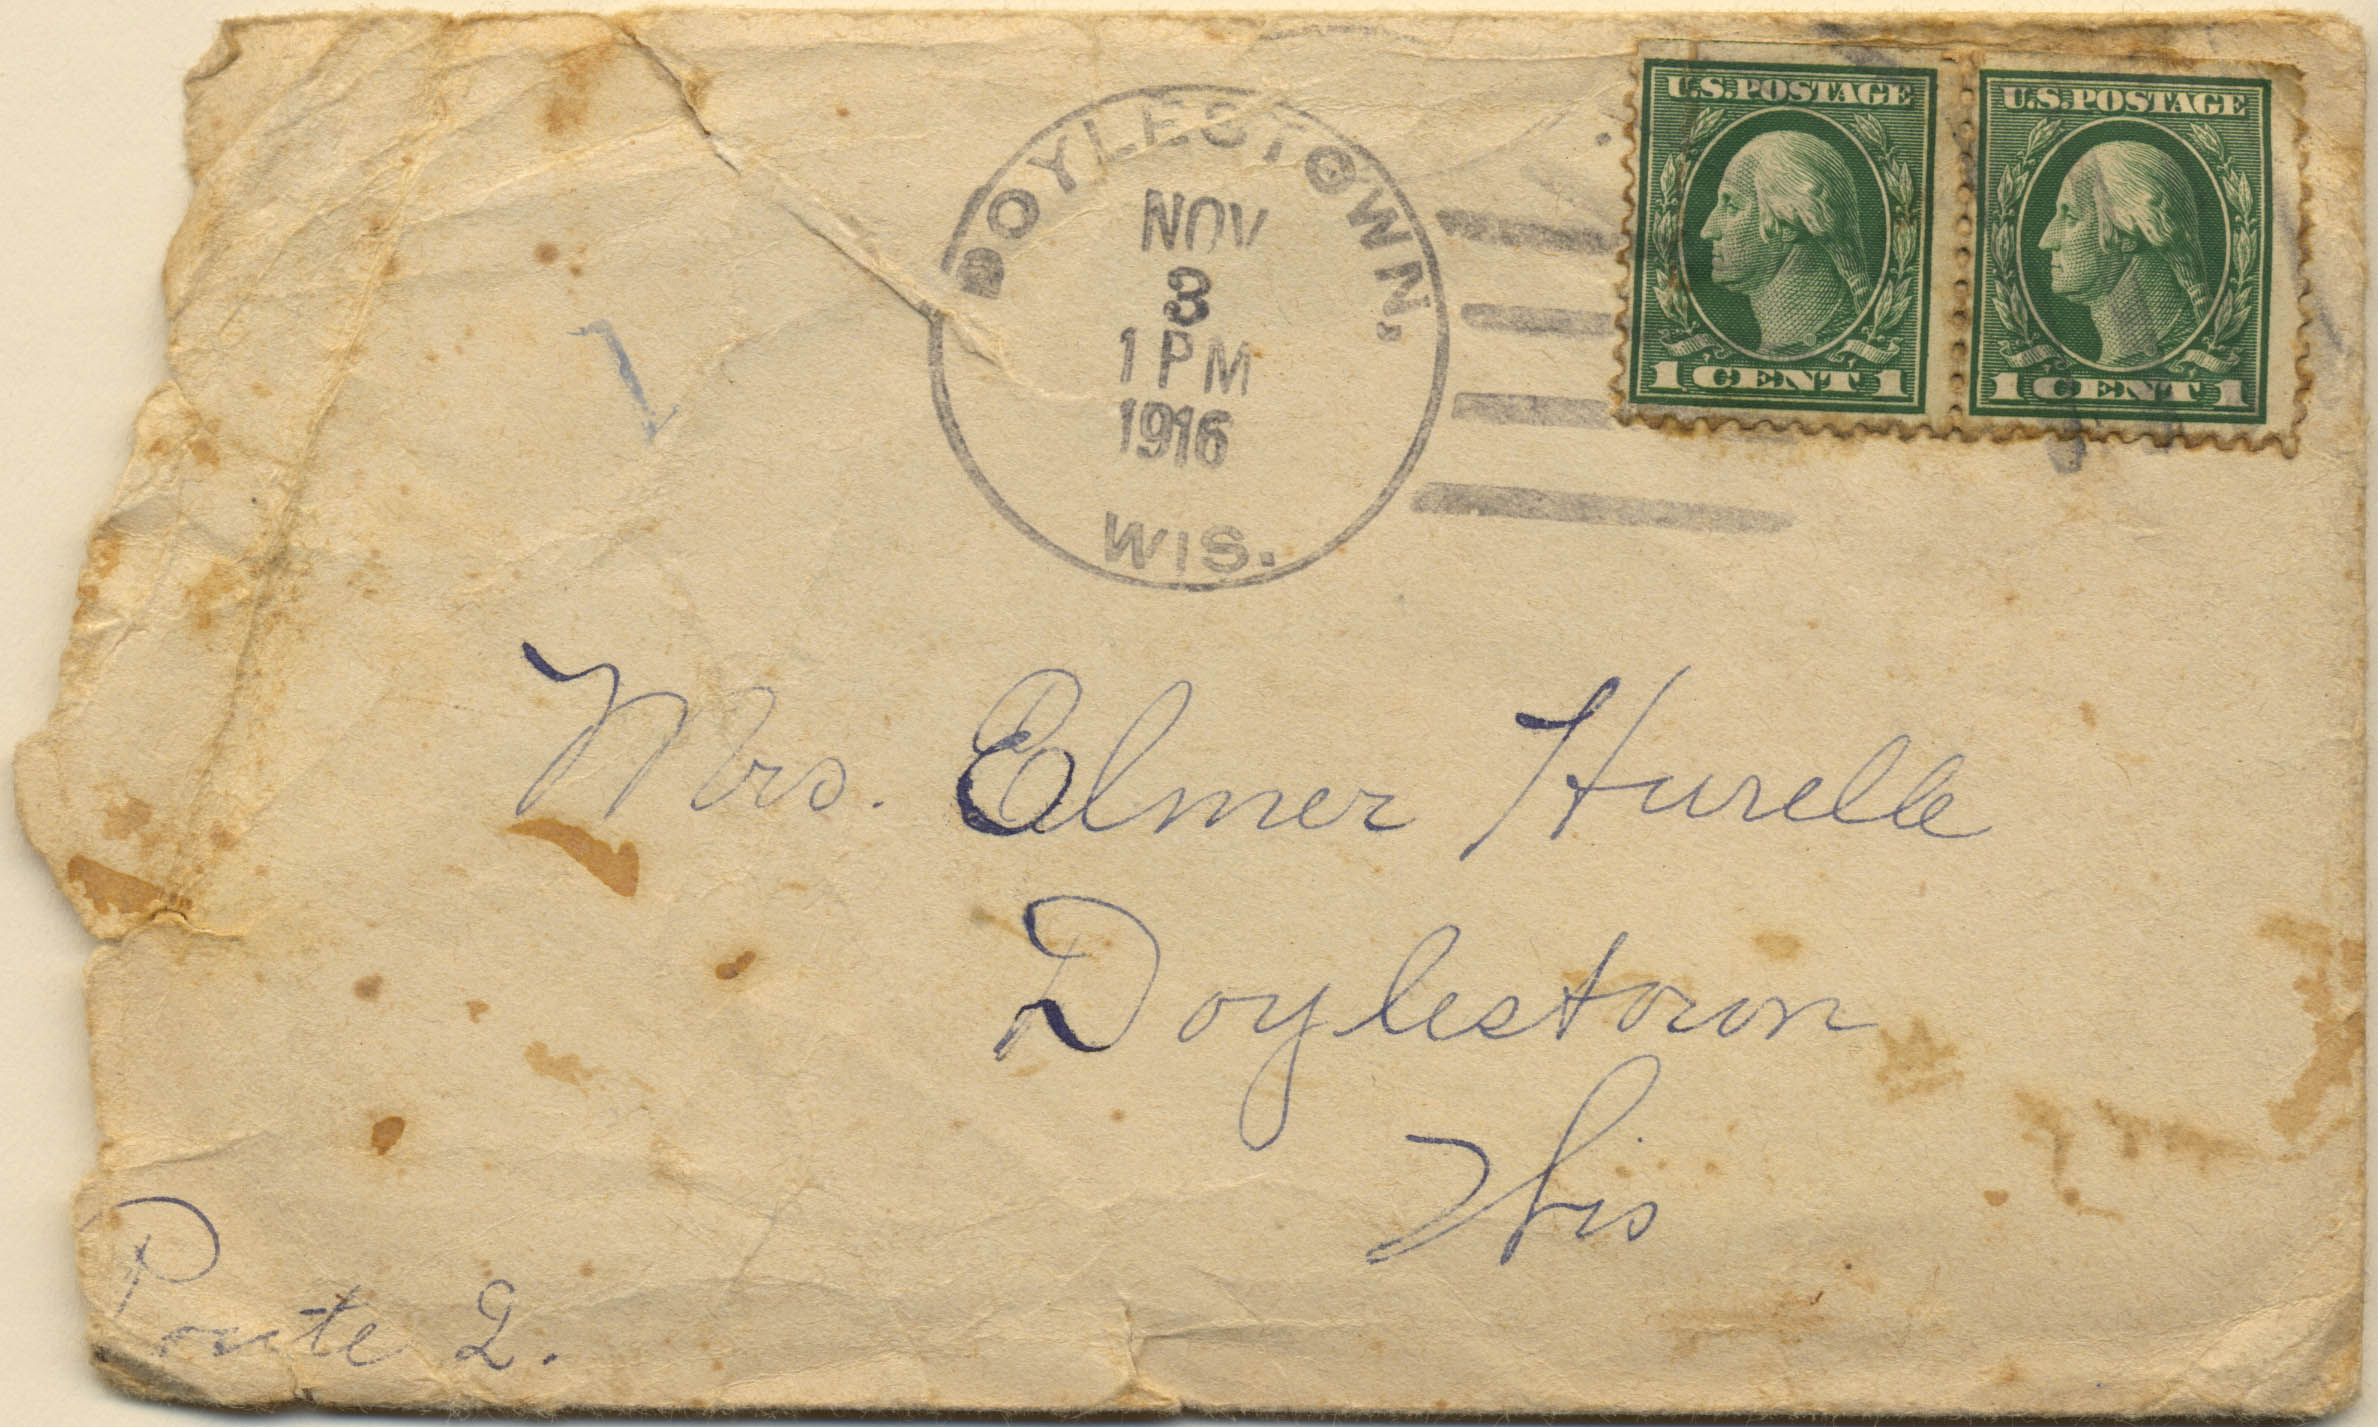 DOYLESTOWN,
NOV
3
1 PM
1916
WIS.
U.S. POSTAGE
1 CENT 1
U.S. POSTAGE
1 CENT 1
Mrs. Elmer Hurelle
Doylestown
Wis
Route 2.